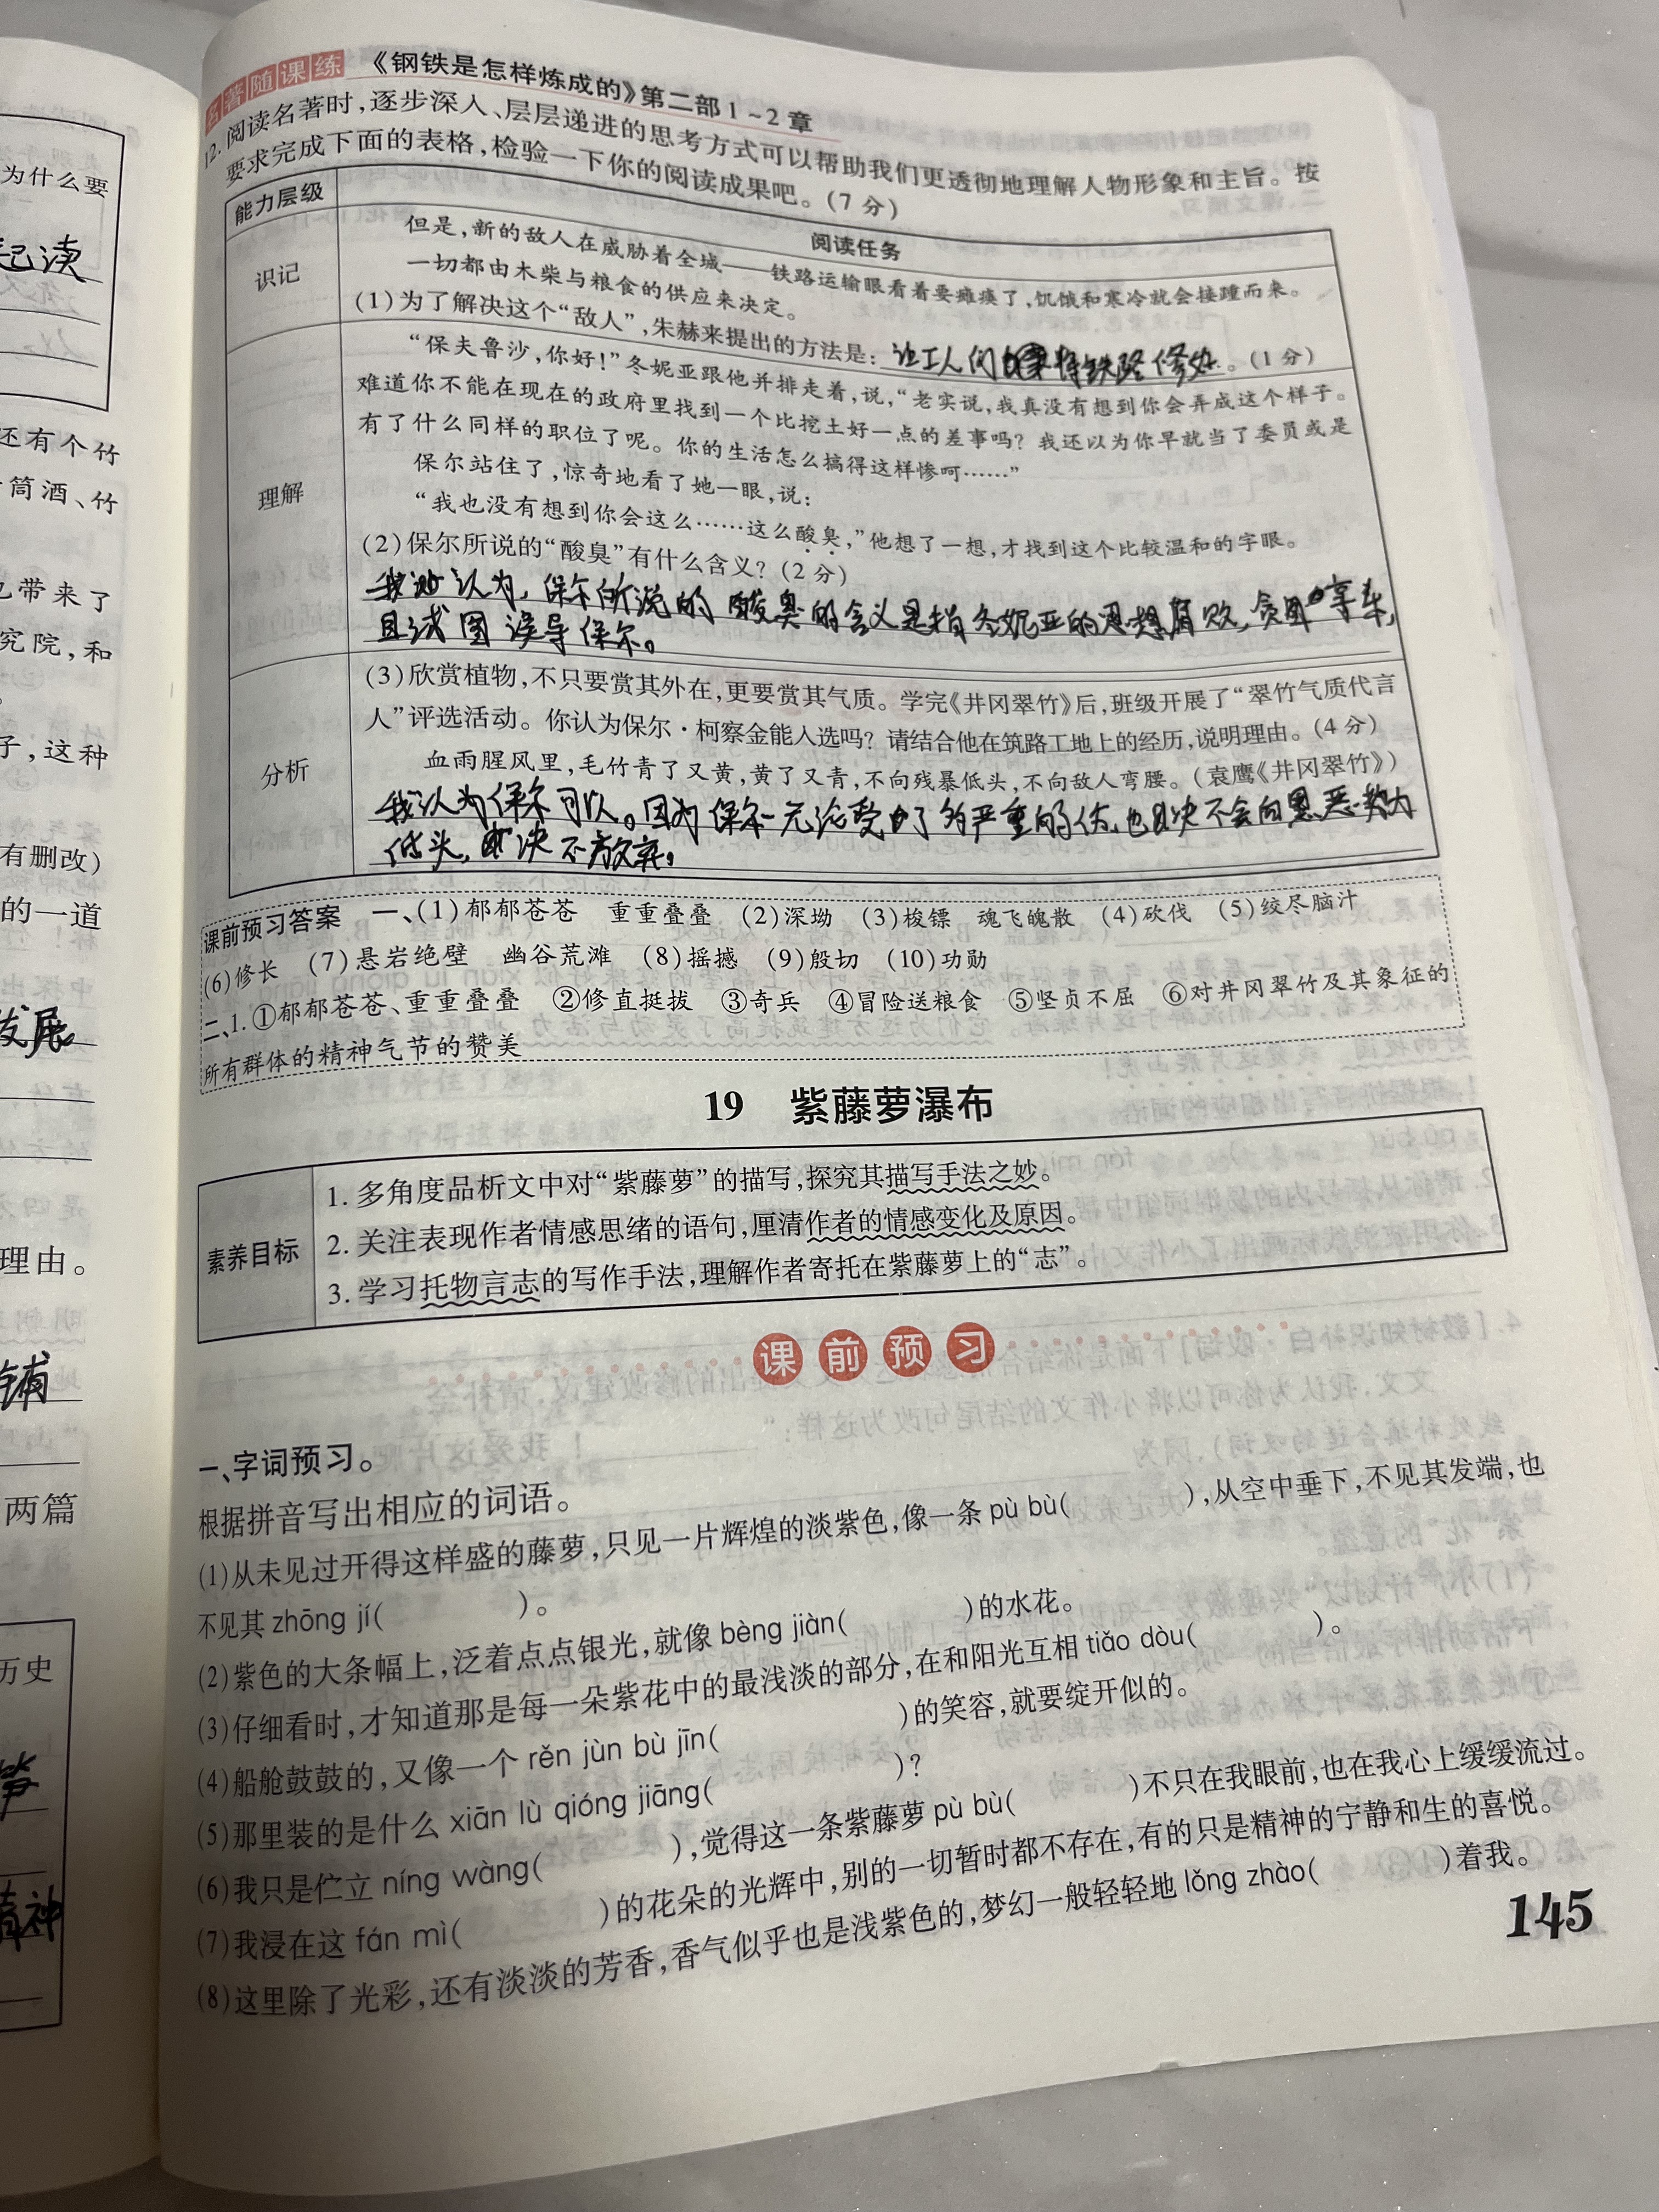 为什么要
起读
还有个竹
筒酒、竹
也带来了
究院,和
子,这种
有删改)
的一道
发展
理由。
铺
两篇
历史
笋
精神
名著随课练 《钢铁是怎样炼成的》第二部1~2章
12. 阅读名著时,逐步深入、层层递进的思考方式可以帮助我们更透彻地理解人物形象和主旨。按
要求完成下面的表格,检验一下你的阅读成果吧。(7分)
能力层级 阅读任务
识记
但是,新的敌人在威胁着全城——铁路运输眼看着要瘫痪了,饥饿和寒冷就会接踵而来。
一切都由木柴与粮食的供应来决定。
(1)为了解决这个“敌人”,朱赫来提出的方法是:让工人们来将铁路修好。(1分)
理解
“保夫鲁沙,你好!”冬妮亚跟他并排走着,说,“老实说,我真没有想到你会弄成这个样子。
难道你不能在现在的政府里找到一个比挖土好一点的差事吗?我还以为你早就当了委员或是
有了什么同样的职位了呢。你的生活怎么搞得这样惨呵……”
保尔站住了,惊奇地看了她一眼,说:
“我也没有想到你会这么……这么酸臭,”他想了一想,才找到这个比较温和的字眼。
(2)保尔所说的“酸臭”有什么含义?(2分)
我认为,保尔所说的酸臭的含义是指冬妮亚的思想腐败,贪图享乐,
且试图误导保尔。
分析
(3)欣赏植物,不只要赏其外在,更要赏其气质。学完《井冈翠竹》后,班级开展了“翠竹气质代言
人”评选活动。你认为保尔·柯察金能入选吗?请结合他在筑路工地上的经历,说明理由。(4分)
血雨腥风里,毛竹青了又黄,黄了又青,不向残暴低头,不向敌人弯腰。(袁鹰《井冈翠竹》)
我认为保尔可以。因为保尔无论受了多严重的伤,也决不会向恶势力
低头,决不放弃。
课前预习答案 一、(1)郁郁苍苍 重重叠叠 (2)深坳 (3)梭镖 魂飞魄散 (4)砍伐 (5)绞尽脑汁
(6)修长 (7)悬岩绝壁 幽谷荒滩 (8)摇撼 (9)殷切 (10)功勋
二、1. ①郁郁苍苍、重重叠叠 ②修直挺拔 ③奇兵 ④冒险送粮食 ⑤坚贞不屈 ⑥对井冈翠竹及其象征的
所有群体的精神气节的赞美
19 紫藤萝瀑布
素养目标
1. 多角度品析文中对“紫藤萝”的描写,探究其描写手法之妙。
2. 关注表现作者情感思绪的语句,厘清作者的情感变化及原因。
3. 学习托物言志的写作手法,理解作者寄托在紫藤萝上的“志”。
课前预习
一、字词预习。
根据拼音写出相应的词语。
(1)从未见过开得这样盛的藤萝,只见一片辉煌的淡紫色,像一条 pù bù( ),从空中垂下,不见其发端,也
不见其 zhōng jí( )。
(2)紫色的大条幅上,泛着点点银光,就像 bèng jiàn( )的水花。
(3)仔细看时,才知道那是每一朵紫花中的最浅淡的部分,在和阳光互相 tiǎo dòu( )。
(4)船舱鼓鼓的,又像一个 rěn jùn bù jīn( )的笑容,就要绽开似的。
(5)那里装的是什么 xiān lù qióng jiāng( )?
(6)我只是伫立 níng wàng( ),觉得这一条紫藤萝 pù bù( )不只在我眼前,也在我心上缓缓流过。
(7)我浸在这 fán mì( )的花朵的光辉中,别的一切暂时都不存在,有的只是精神的宁静和生的喜悦。
(8)这里除了光彩,还有淡淡的芳香,香气似乎也是浅紫色的,梦幻一般轻轻地 lǒng zhào( )着我。
145